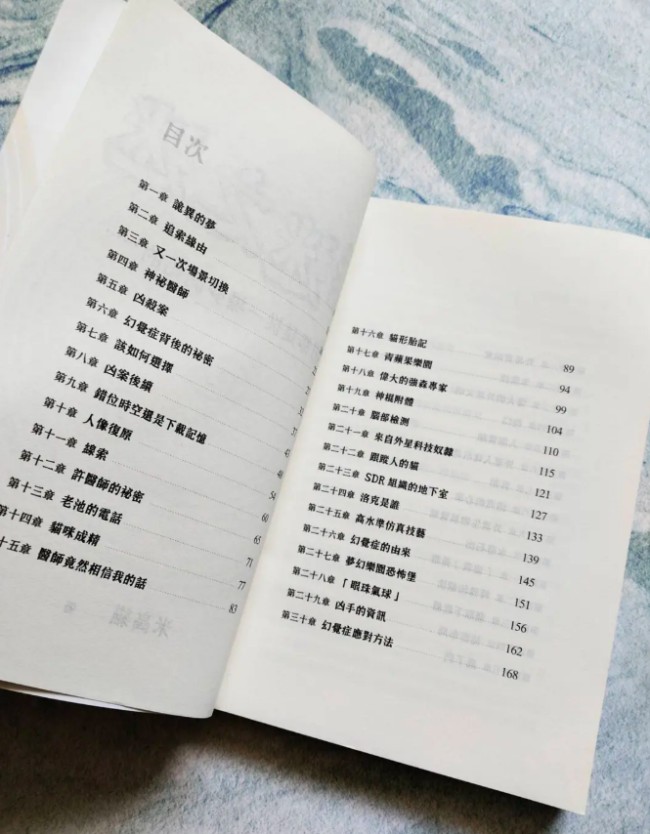 目次
第一章 詭異的夢
第二章 追索緣由
第三章 又一次場景切換
第四章 神祕醫師
第五章 凶殺案
第六章 幻覺症背後的祕密
第七章 該如何選擇
第八章 凶案後續
第九章 錯位時空還是下載記憶
第十章 人像復原 54
第十一章 線索 60
第十二章 許醫師的祕密 65
第十三章 老池的電話 71
第十四章 貓咪成精 77
十五章 醫師竟然相信我的話 83
第十六章 貓形胎記 89
第十七章 青蘋果樂園 94
第十八章 偉大的強森專家 99
第十九章 神棍附體 104
第二十章 腦部檢測 110
第二十一章 來自外星科技奴隸 115
第二十二章 跟蹤人的貓 121
第二十三章 SDR 組織的地下室 127
第二十四章 洛克是誰 133
第二十五章 高水準仿真技藝 139
第二十六章 幻覺症的由來 145
第二十七章 夢幻樂園恐怖堡 151
第二十八章 「眼珠氣球」 156
第二十九章 凶手的資訊 162
第三十章 幻覺症應對方法 168